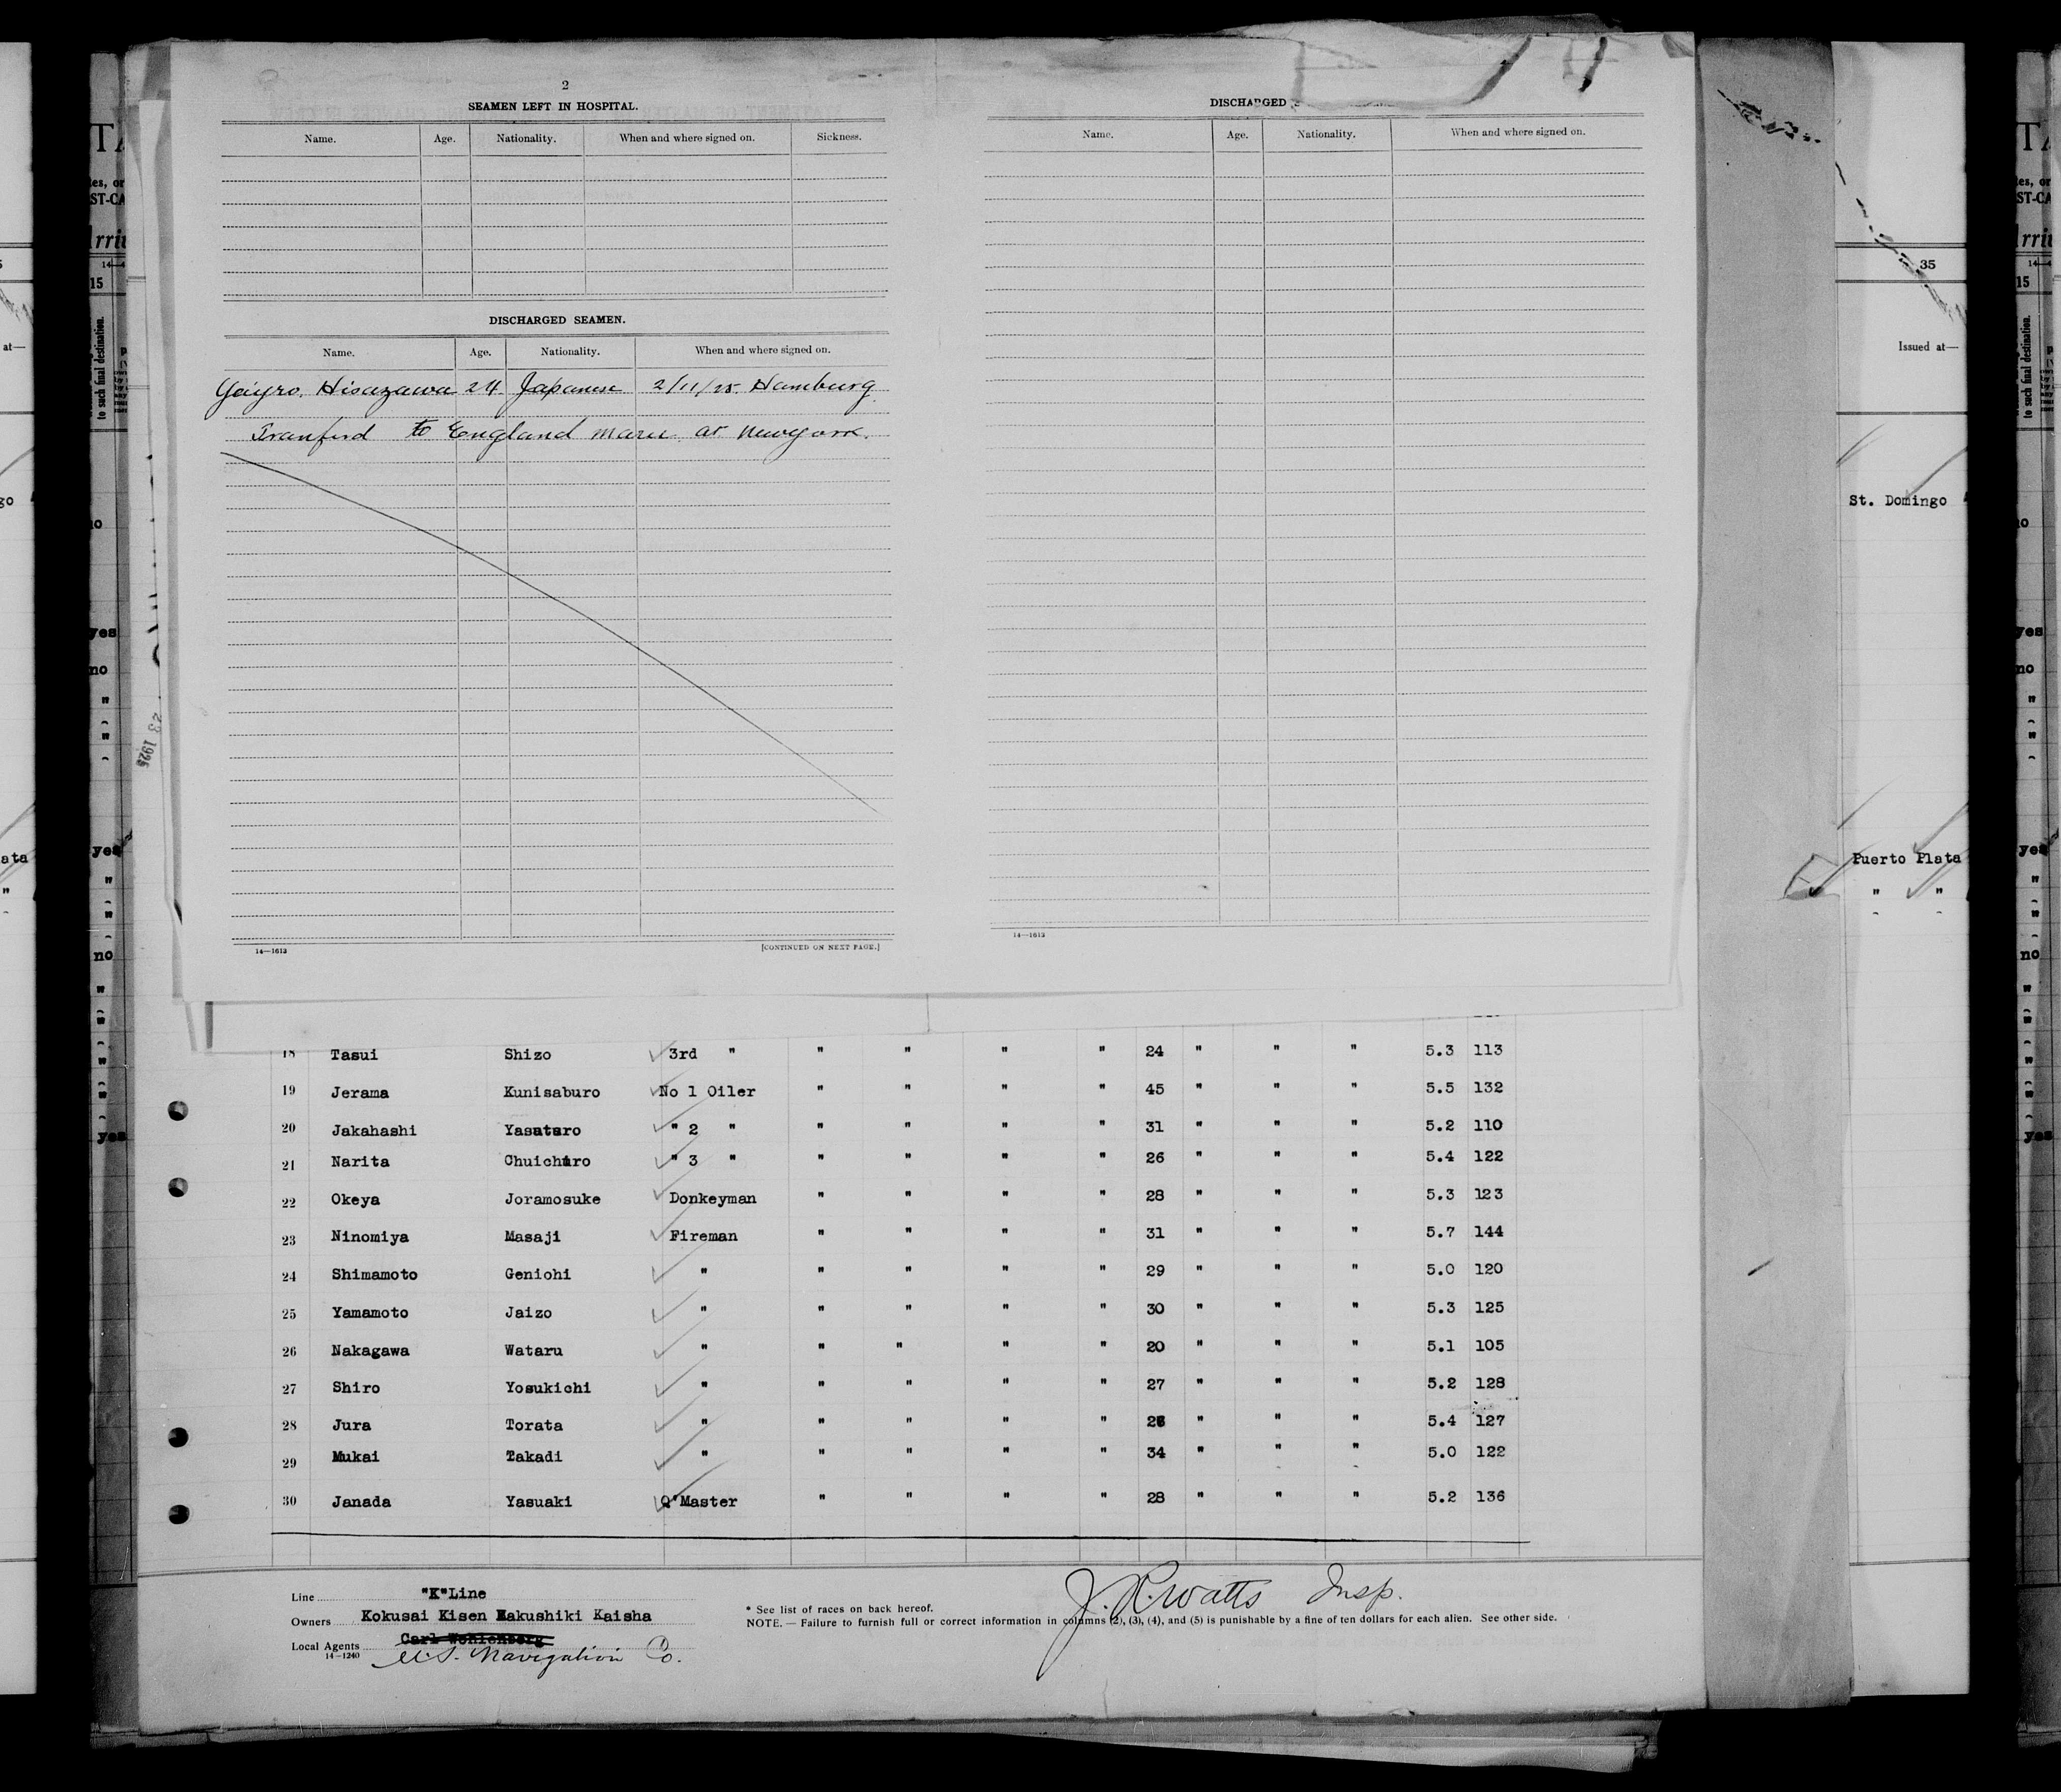 2
SEAMEN LEFT IN HOSPITAL.
Name. Age. Nationality. When and where signed on. Sickness.
DISCHARGED SEAMEN.
Name. Age. Nationality. When and where signed on.
Hisazawa 24 Japanese 2/11/25. Hamburg
to England maru at Newyork.
14—1613 [CONTINUED ON NEXT PAGE.]
DISCHARGED
Name. Age. Nationality. When and where signed on.
14—1613
18 Tasui Shizo 3rd " " " " " 24 " " " 5.3 113
19 Jerama Kunisaburo No 1 Oiler " " " " 45 " " " 5.5 132
20 Jakahashi Yasataro " 2 " " " " " 31 " " " 5.2 110
21 Narita Chuicharo " 3 " " " " " 26 " " " 5.4 122
22 Okeya Joramosuke Donkeyman " " " " 28 " " " 5.3 123
23 Ninomiya Masaji Fireman " " " " 31 " " " 5.7 144
24 Shimamoto Geniohi " " " " " 29 " " " 5.0 120
25 Yamamoto Jaizo " " " " " 30 " " " 5.3 125
26 Nakagawa Wataru " " " " " 20 " " " 5.1 105
27 Shiro Yosukichi " " " " " 27 " " " 5.2 128
28 Jura Torata " " " " " " " " 5.4 127
29 Mukai Takadi " " " " " 34 " " " 5.0 122
30 Janada Yasuaki Q'Master " " " " 28 " " " 5.2 136
Line "K"Line
Owners Kokusai Kisen Kakushiki Kaisha
Local Agents Carl Wohlenberg
14—1240 U.S. Navigation Co.
* See list of races on back hereof.
NOTE.—Failure to furnish full or correct information in columns (2), (3), (4), and (5) is punishable by a fine of ten dollars for each alien. See other side.
J. R. Watts Insp.
35
Issued at—
St. Domingo
Puerto Plata
" "
to such final destination.
15
yes
no
"
"
yes
"
"
no
"
"
"
"
yes